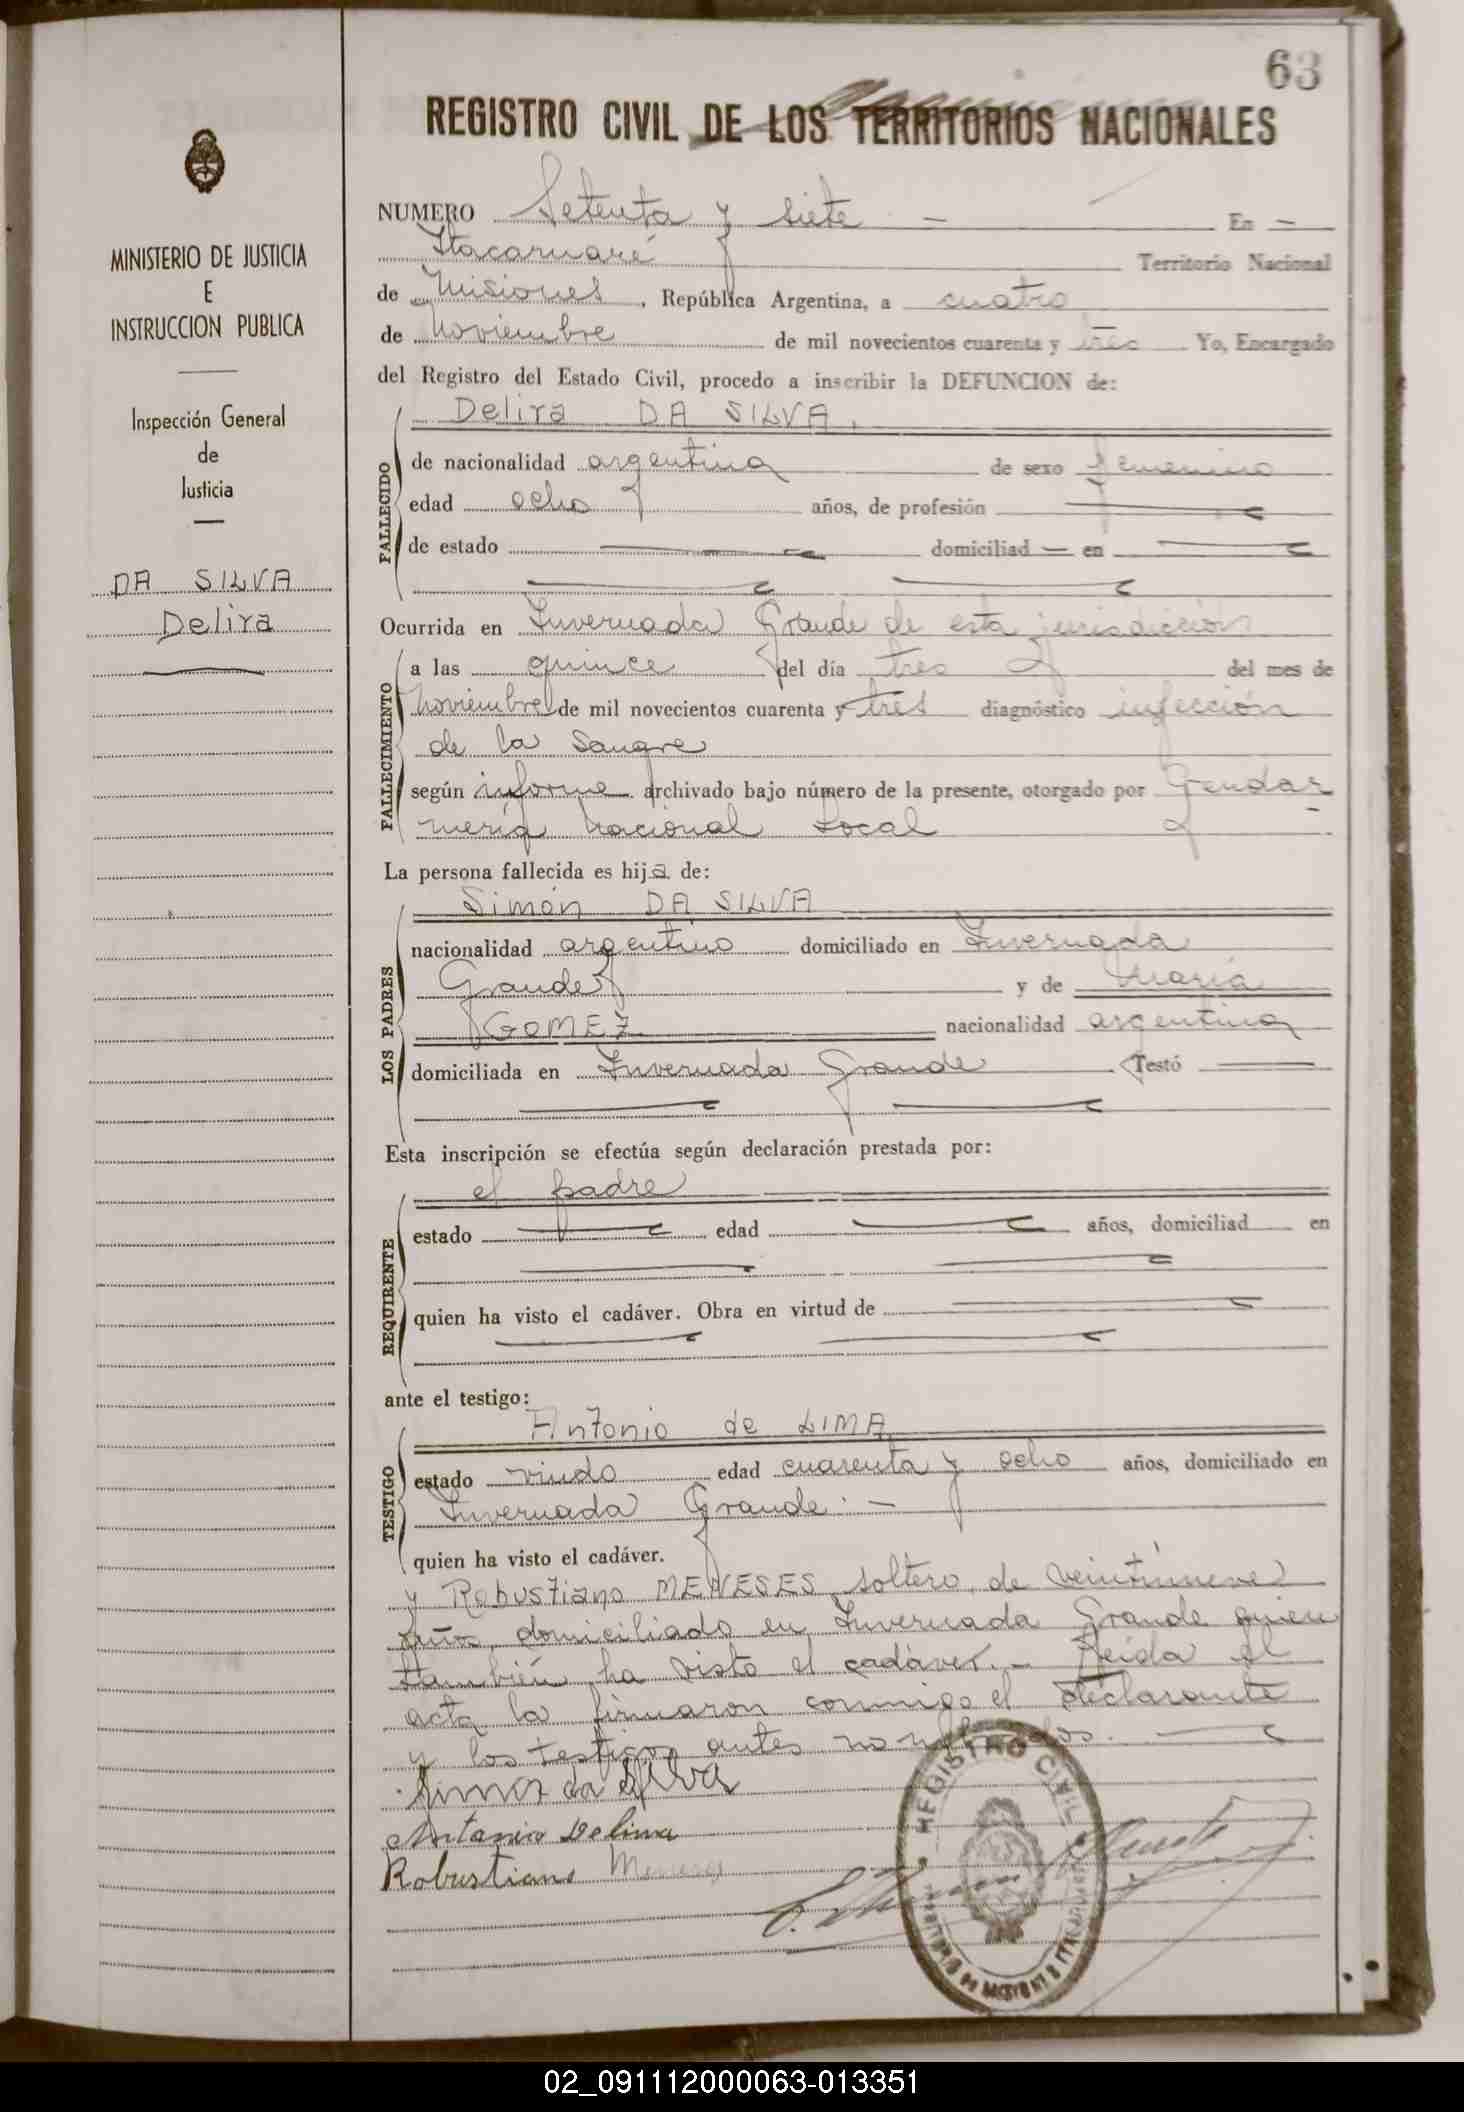 63
REGISTRO CIVIL DE LOS TERRITORIOS NACIONALES
MINISTERIO DE JUSTICIA
E
INSTRUCCION PUBLICA
Inspección General
de
Justicia
DA SILVA
Delira
NUMERO Setenta y siete - En -
Itacaruaré Territorio Nacional
de Misiones, República Argentina, a cuatro
de Noviembre de mil novecientos cuarenta y tres Yo, Encargado
del Registro del Estado Civil, procedo a inscribir la DEFUNCION de:
Delira DA SILVA,
FALLECIDO
de nacionalidad argentina de sexo femenino
edad ocho años, de profesión
de estado domiciliad — en
Ocurrida en Invernada Grande de esta jurisdicción
FALLECIMIENTO
a las quince del día tres del mes de
Noviembre de mil novecientos cuarenta y tres diagnóstico infección
de la sangre
según informe archivado bajo número de la presente, otorgado por Gendar
mería Nacional Local
La persona fallecida es hija de:
LOS PADRES
Simón DA SILVA
nacionalidad argentino domiciliado en Invernada
Grande y de María
GOMEZ nacionalidad argentina
domiciliada en Invernada Grande Testó
Esta inscripción se efectúa según declaración prestada por:
REQUIRENTE
el padre
estado edad años, domiciliad en
quien ha visto el cadáver. Obra en virtud de
ante el testigo:
TESTIGO
Antonio de LIMA
estado viudo edad cuarenta y ocho años, domiciliado en
Invernada Grande.-
quien ha visto el cadáver.
y Robustiano MENESES, soltero, de veintinueve
años, domiciliado en Invernada Grande quien
también ha visto el cadáver.- Leída el
acta la firmaron conmigo el declarante
y los testigos antes nombrados.
Simon da Silva
Antanio Delima
Robustiano Meneses
REGISTRO CIVIL
02_091112000063-013351